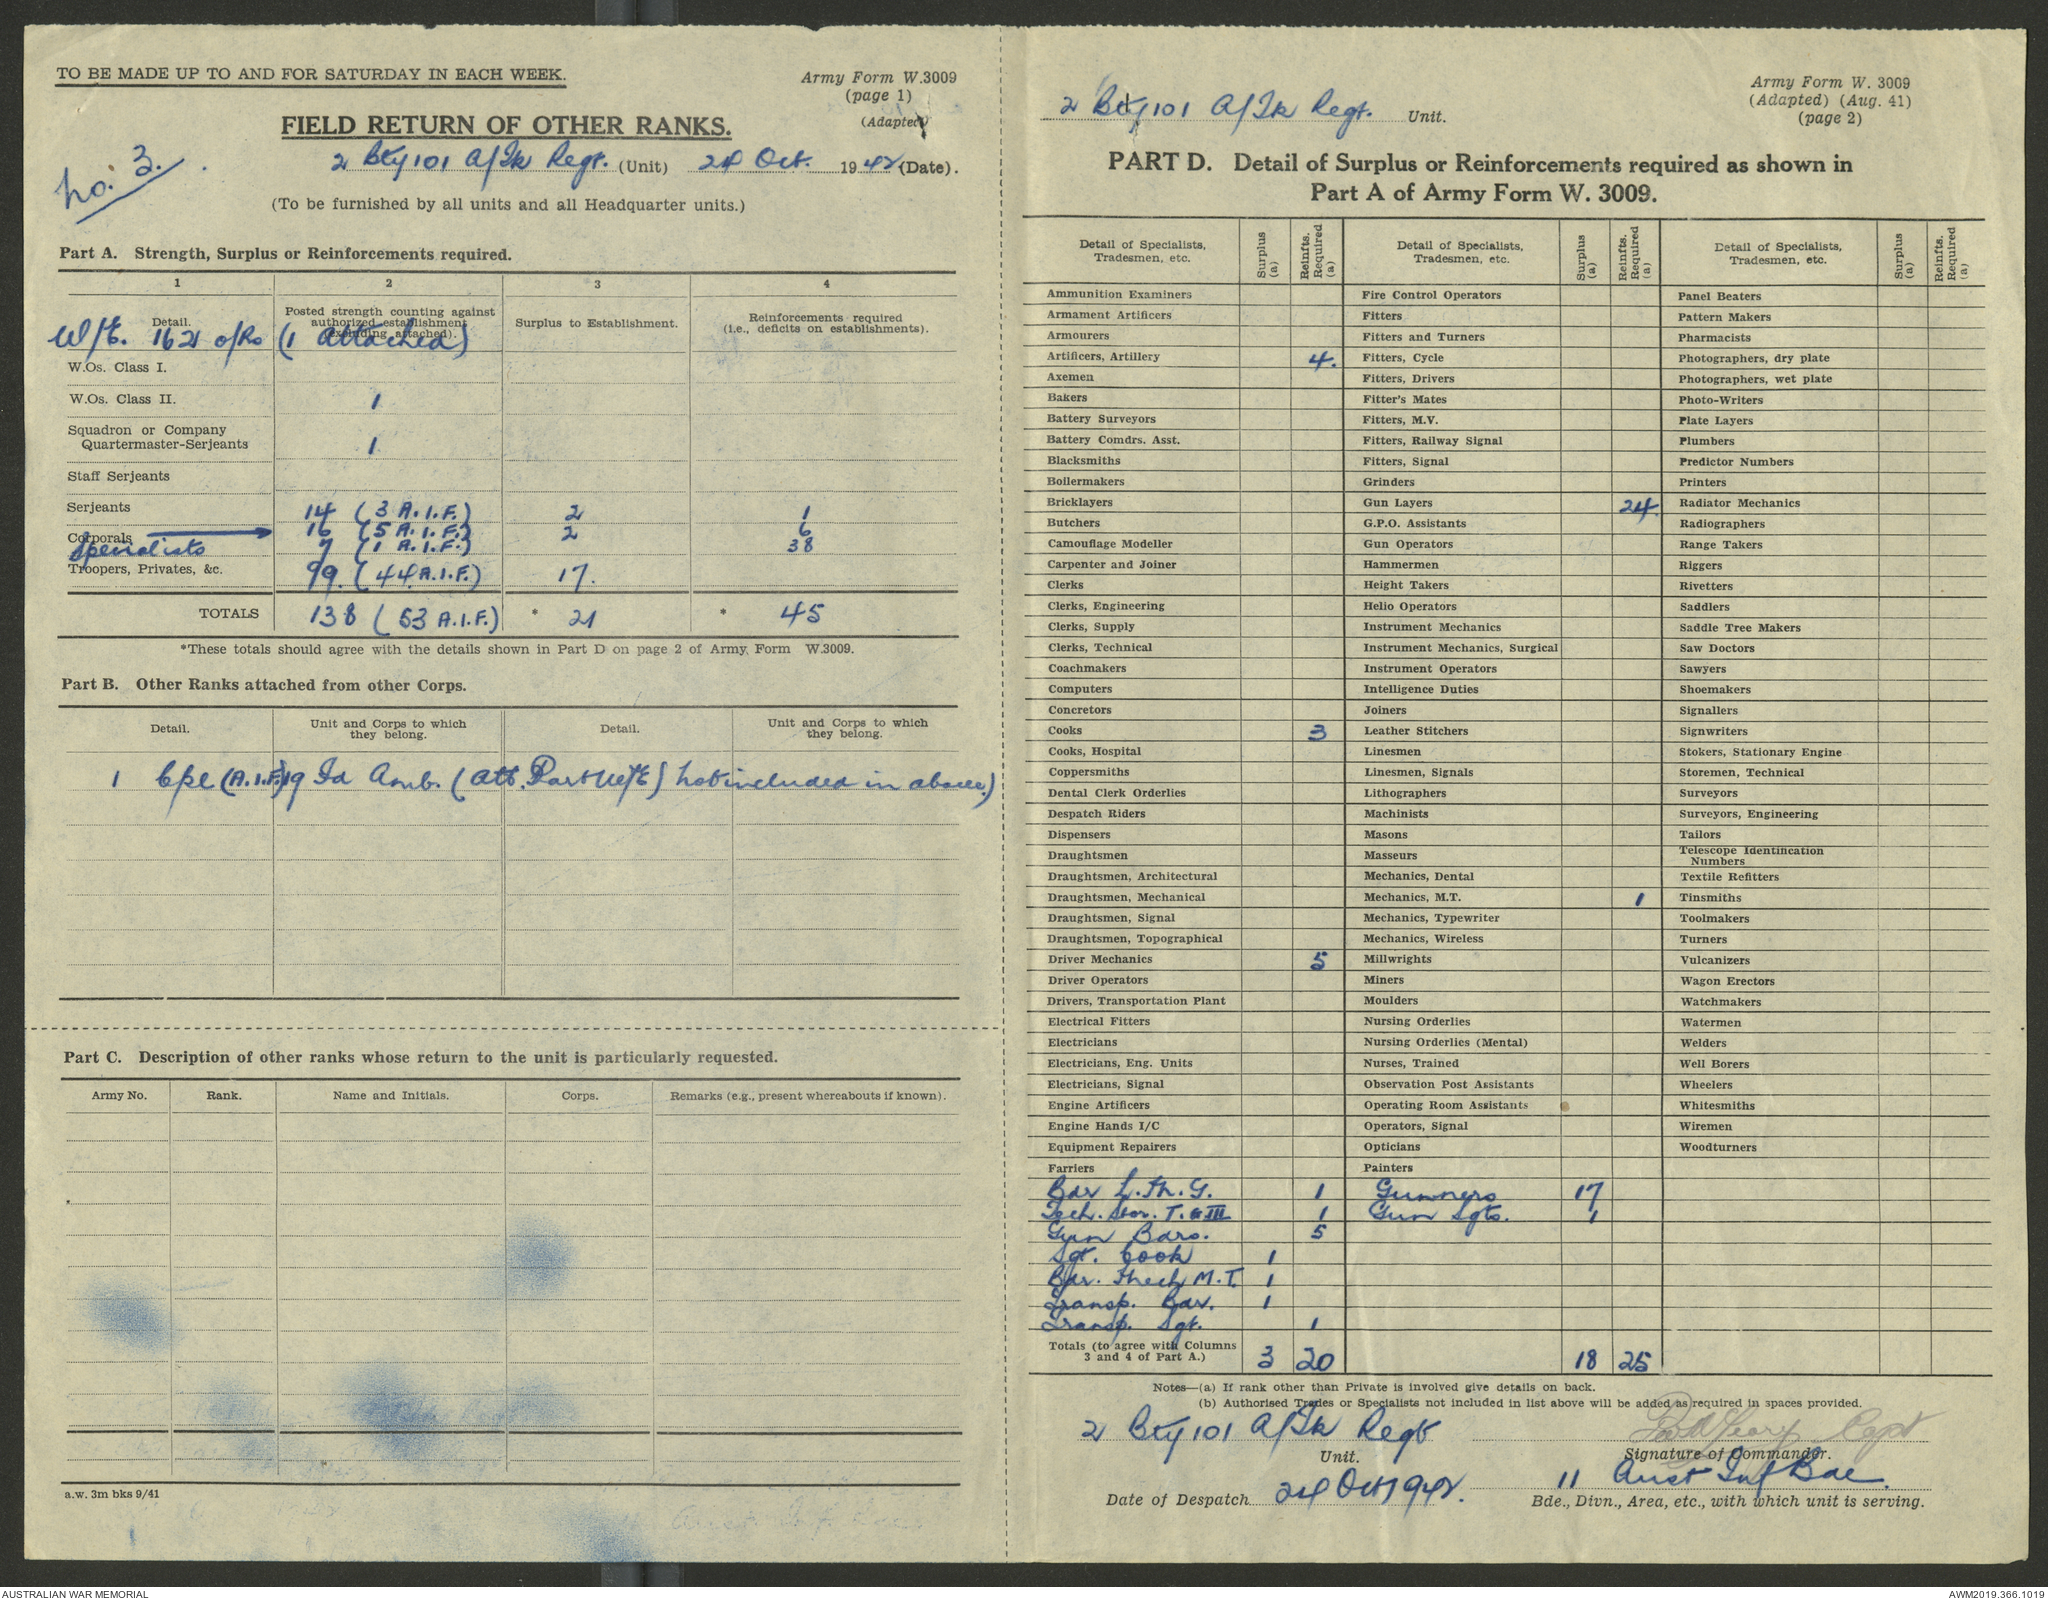 TO BE MADE UP TO AND FOR SATURDAY IN EACH WEEK.
Army Form W.3009
(page 1)
(Adapted)
FIELD RETURN OF OTHER RANKS.
No. 3.
2 Bty 101 A/Tk Regt. (Unit) 24 Oct. 1942 (Date).
(To be furnished by all units and all Headquarter units.)
Part A. Strength, Surplus or Reinforcements required.
1 2 3 4
Detail.
Posted strength counting against authorized establishment (excluding attached).
Surplus to Establishment.
Reinforcements required (i.e., deficits on establishments).
W/E. 162 o/Rs (1 attached)
W.Os. Class I.
W.Os. Class II. 1
Squadron or Company
Quartermaster-Serjeants 1
Staff Serjeants
Serjeants 14 (3 A.I.F.) 2 1
Corporals 16 (5 A.I.F.) 2 6
Specialists 7 (1 A.I.F.) 38
Troopers, Privates, &c. 99. (44 A.I.F.) 17.
TOTALS 138 (53 A.I.F.) * 21 * 45
*These totals should agree with the details shown in Part D on page 2 of Army Form W.3009.
Part B. Other Ranks attached from other Corps.
Detail. Unit and Corps to which they belong. Detail. Unit and Corps to which they belong.
1 Cpl (A.I.F.) 19 Fd Amb. (att. Part W/E) not included in above.)
Part C. Description of other ranks whose return to the unit is particularly requested.
Army No. Rank. Name and Initials. Corps. Remarks (e.g., present whereabouts if known).
a.w. 3m bks 9/41
2 Bty 101 A/Tk Regt. Unit.
Army Form W. 3009
(Adapted) (Aug. 41)
(page 2)
PART D. Detail of Surplus or Reinforcements required as shown in
Part A of Army Form W. 3009.
Detail of Specialists, Tradesmen, etc. Surplus (a) Reinfts. Required (a) Detail of Specialists, Tradesmen, etc. Surplus (a) Reinfts. Required (a) Detail of Specialists, Tradesmen, etc. Surplus (a) Reinfts. Required (a)
Ammunition Examiners Fire Control Operators Panel Beaters
Armament Artificers Fitters Pattern Makers
Armourers Fitters and Turners Pharmacists
Artificers, Artillery 4. Fitters, Cycle Photographers, dry plate
Axemen Fitters, Drivers Photographers, wet plate
Bakers Fitter's Mates Photo-Writers
Battery Surveyors Fitters, M.V. Plate Layers
Battery Comdrs. Asst. Fitters, Railway Signal Plumbers
Blacksmiths Fitters, Signal Predictor Numbers
Boilermakers Grinders Printers
Bricklayers Gun Layers 24. Radiator Mechanics
Butchers G.P.O. Assistants Radiographers
Camouflage Modeller Gun Operators Range Takers
Carpenter and Joiner Hammermen Riggers
Clerks Height Takers Rivetters
Clerks, Engineering Helio Operators Saddlers
Clerks, Supply Instrument Mechanics Saddle Tree Makers
Clerks, Technical Instrument Mechanics, Surgical Saw Doctors
Coachmakers Instrument Operators Sawyers
Computers Intelligence Duties Shoemakers
Concretors Joiners Signallers
Cooks 3 Leather Stitchers Signwriters
Cooks, Hospital Linesmen Stokers, Stationary Engine
Coppersmiths Linesmen, Signals Storemen, Technical
Dental Clerk Orderlies Lithographers Surveyors
Despatch Riders Machinists Surveyors, Engineering
Dispensers Masons Tailors
Draughtsmen Masseurs Telescope Identification Numbers
Draughtsmen, Architectural Mechanics, Dental Textile Refitters
Draughtsmen, Mechanical Mechanics, M.T. 1 Tinsmiths
Draughtsmen, Signal Mechanics, Typewriter Toolmakers
Draughtsmen, Topographical Mechanics, Wireless Turners
Driver Mechanics 5 Millwrights Vulcanizers
Driver Operators Miners Wagon Erectors
Drivers, Transportation Plant Moulders Watchmakers
Electrical Fitters Nursing Orderlies Watermen
Electricians Nursing Orderlies (Mental) Welders
Electricians, Eng. Units Nurses, Trained Well Borers
Electricians, Signal Observation Post Assistants Wheelers
Engine Artificers Operating Room Assistants Whitesmiths
Engine Hands I/C Operators, Signal Wiremen
Equipment Repairers Opticians Woodturners
Farriers Painters
Bdr L.M.G. 1 Gunners 17
Tech. Stor. T. G III 1 Gun Sgts. 1
Gun Bdrs. 5
Sgt. Cook 1
Bdr. Mech M.T. 1
Transp. Bdr. 1
Transp. Sgt. 1
Totals (to agree with Columns 3 and 4 of Part A.) 3 20 18 25
Notes—(a) If rank other than Private is involved give details on back.
(b) Authorised Trades or Specialists not included in list above will be added as required in spaces provided.
2 Bty 101 A/Tk Regt
Unit.
Capt
Signature of Commander.
Date of Despatch 24 Oct 1942.
11 Aust Inf Bde.
Bde., Divn., Area, etc., with which unit is serving.
AUSTRALIAN WAR MEMORIAL
AWM2019.366.1019